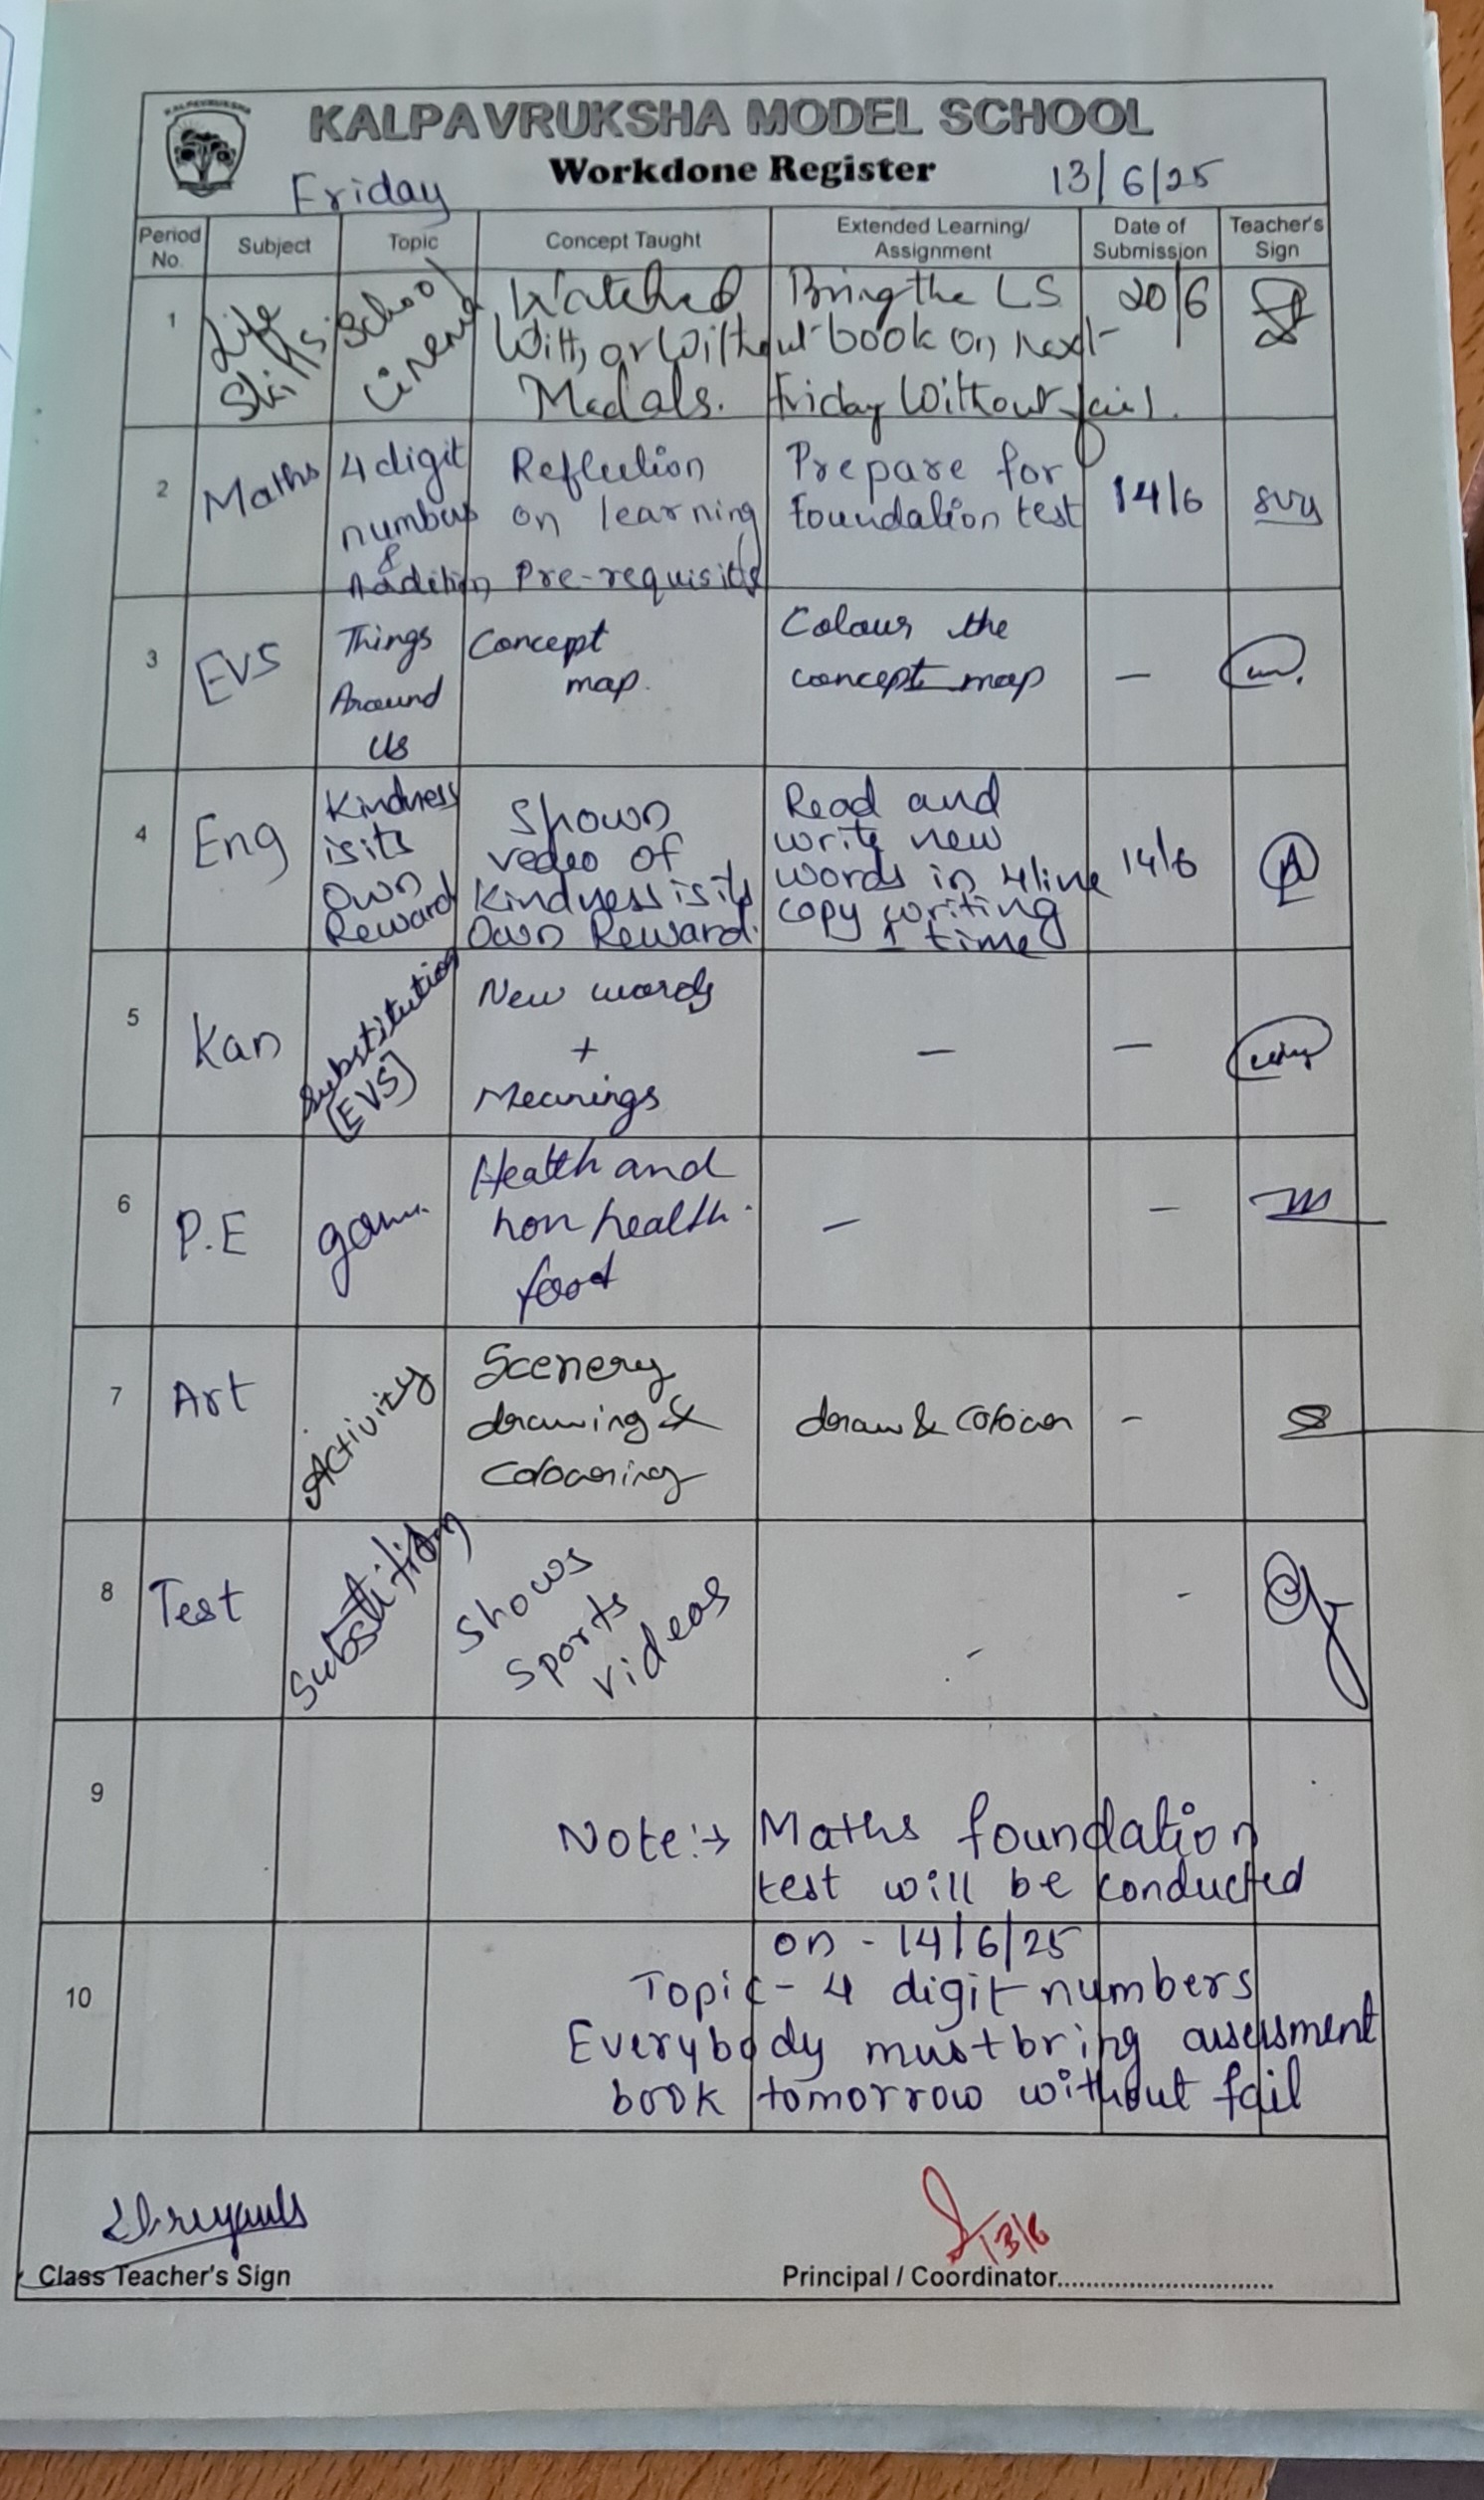 KALPAVRUKSHA
KALPAVRUKSHA MODEL SCHOOL
Workdone Register
Friday
13/6/25
Period No.
Subject
Topic
Concept Taught
Extended Learning/ Assignment
Date of Submission
Teacher's Sign
1
Life
Skills
School
Cinema
Watched
With or Without
Medals.
Bring the LS
book on next
Friday Without fail.
20/6
2
Maths
4 digit
numbers
&
Addition
Reflection
on learning
Pre-requisits
Prepare for
Foundation test
14/6
3
EVS
Things
Around
Us
Concept
map.
Colour the
concept map
-
4
Eng
Kindness
is its
Own
Reward
Shown
vedeo of
Kindness is its
Own Reward.
Read and
write new
words in 4 line
copy writing
1 time
14/6
5
Kan
Substitution
(EVS)
New words
+
Meanings
-
-
6
P.E
Health and
non health.
food
-
-
7
Art
Activity
Scenery
drawing &
Colouring
draw & Colour
-
8
Test
Shows
Sports
Videos
-
-
9
Note:→ Maths foundation
test will be conducted
on - 14/6/25
10
Topic - 4 digit numbers
Everybody must bring
book tomorrow without fail
Class Teacher's Sign
13/6
Principal / Coordinator..............................